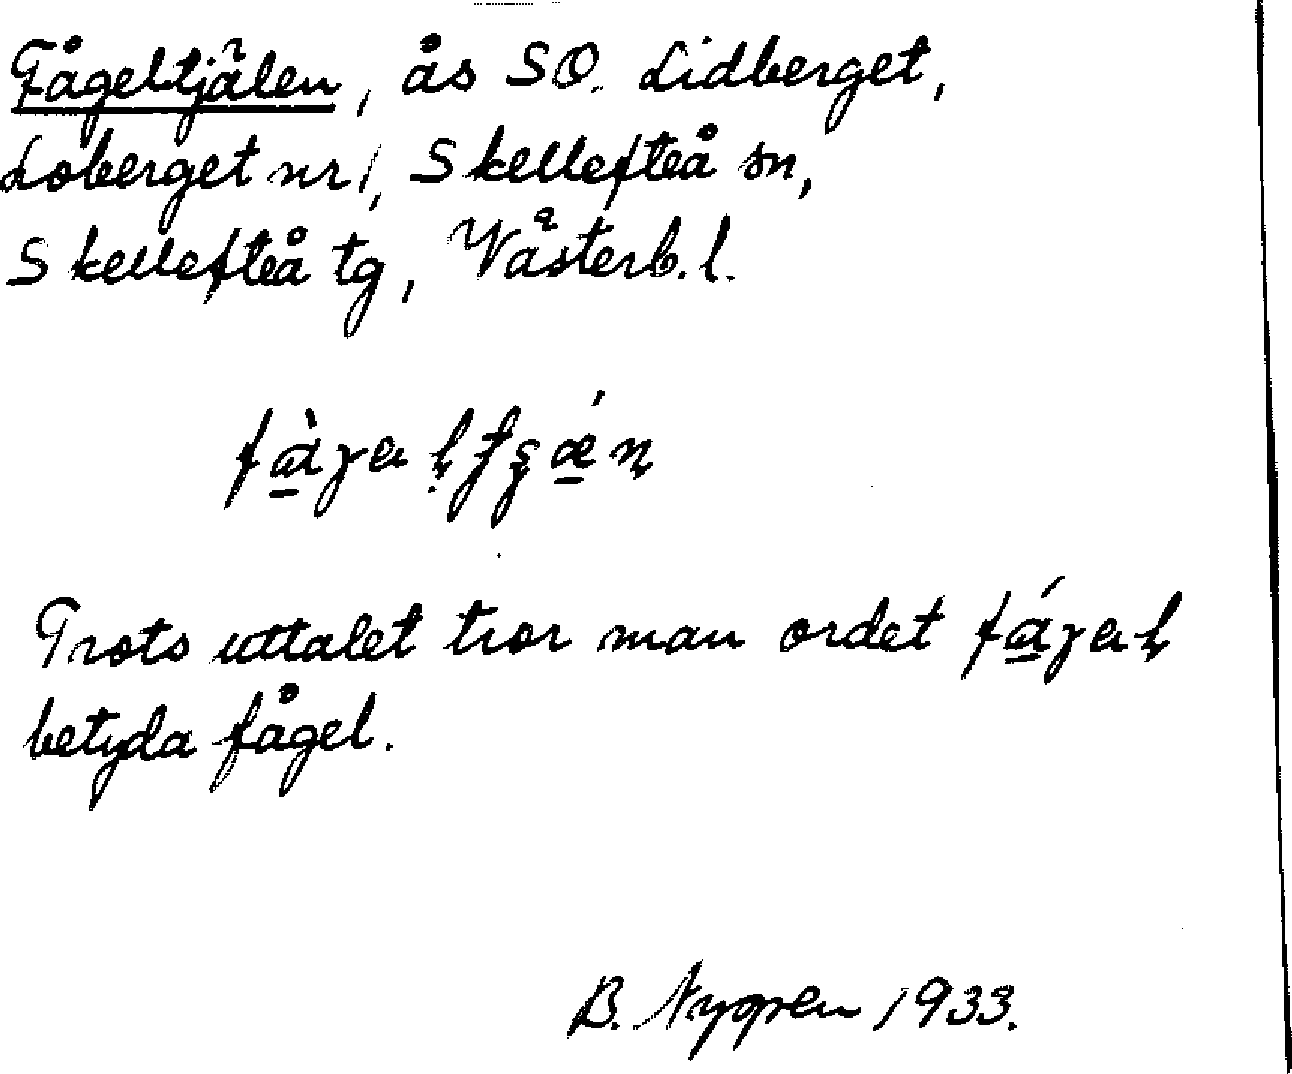 Fågeltjälen, ås SO. Lidberget,
Loberget nr 1, Skellefteå sn,
Skellefteå tg, Västerb. l.
Trots uttalet tror man ordet
betyda fågel.
B. Nygren 1933.